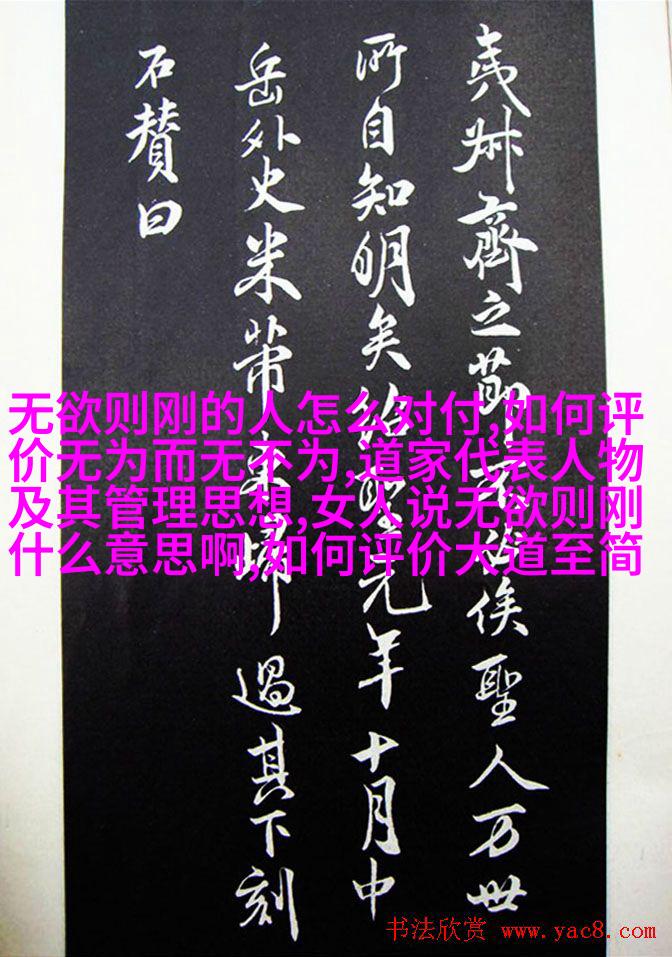 夷叔齊之節不必俟聖人万世
所自知明矣紹聖元年十月中
岳外史米芾東歸過其下刻
石賛曰
无欲则刚的人怎么对付,如何评
价无为而无不为,道家代表人物
及其管理思想,女人说无欲则刚
什么意思啊,如何评价大道至简
书法欣赏 www.yac8.com